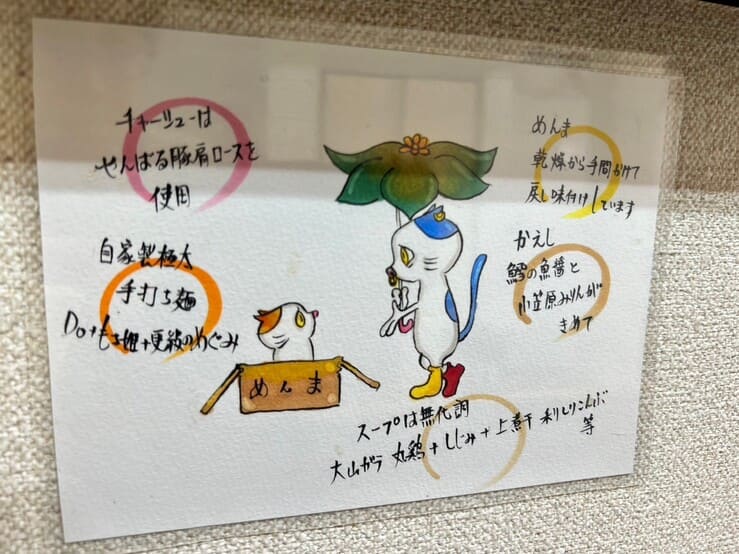 チャーシューは
やんばる豚肩ロースを
使用
めんま
乾燥から手間かけて
戻し味付けしています
自家製極太
手打ち麺
Do+もち姫+更級のめぐみ
かえし
鱈の魚醤と
小笠原みりんが
きめて
めんま
スープは無化調
大山ガラ 丸鶏+しじみ+上煮干 利しりこんぶ
等